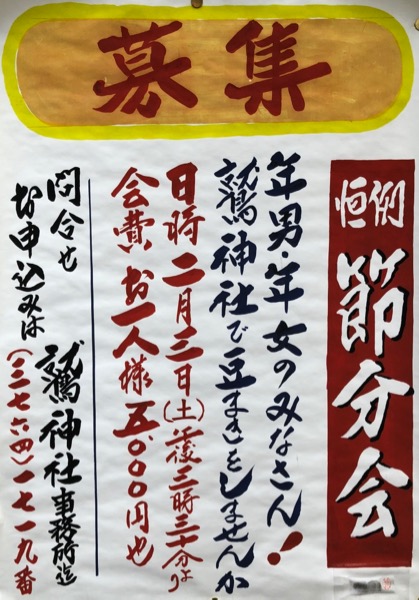 募集
恒例 節分会
年男・年女のみなさん!
鷲神社で豆まきをしませんか
日時 二月三日(土)午後三時三十分より
会費 お一人様 五、〇〇〇円也
問合せ
お申込みは 鷲神社事務所迄
(三八七六四)一七一九番